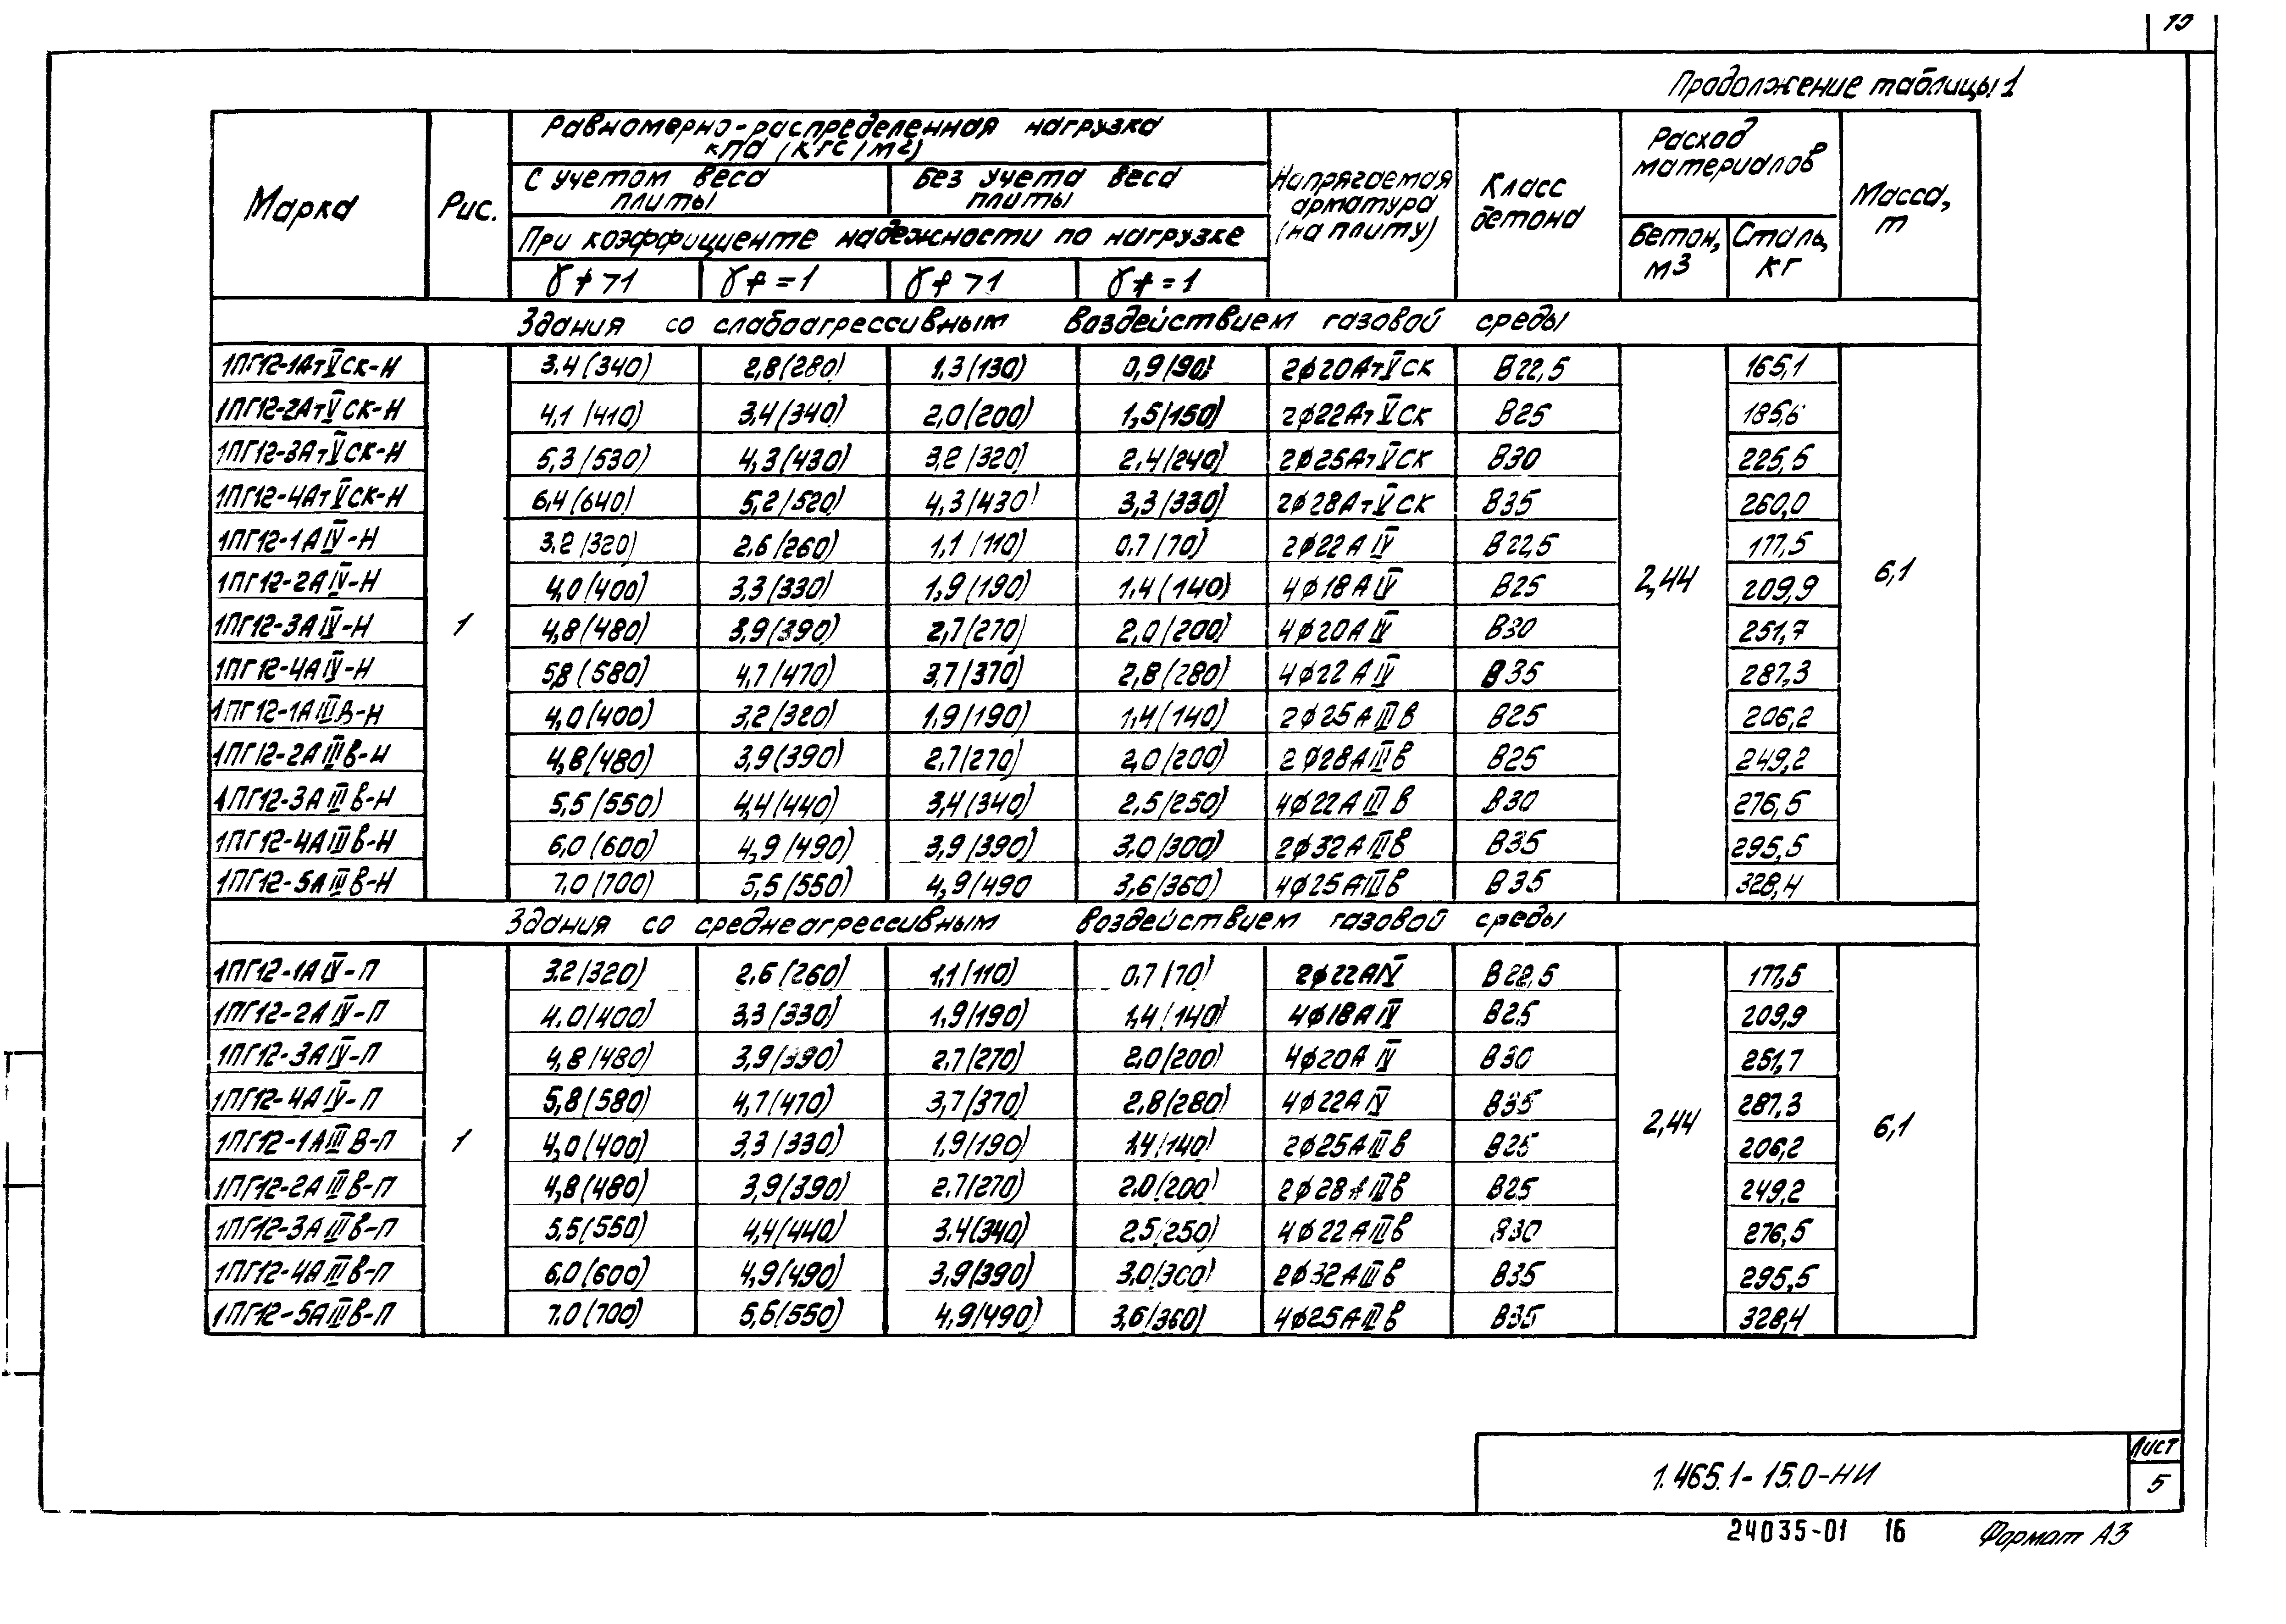 15
Продолжение таблицы 1
Марка
Рис.
Равномерно-распределенная нагрузка
кПа (кгс/м2)
С учетом веса плиты
Без учета веса плиты
При коэффициенте надежности по нагрузке
γf >1
γf =1
γf >1
γf =1
Напрягаемая арматура (на плиту)
Класс бетона
Расход материалов
Бетон, м3
Сталь, кг
Масса, т
Здания со слабоагрессивным воздействием газовой среды
1ПГ12-1АтⅤСК-Н 3,4(340) 2,8(280) 1,3(130) 0,9(90) 2ϕ20АтⅤСК В22,5 165,1
1ПГ12-2АтⅤСК-Н 4,1(410) 3,4(340) 2,0(200) 1,5(150) 2ϕ22АтⅤСК В25 185,6
1ПГ12-3АтⅤСК-Н 5,3(530) 4,3(430) 3,2(320) 2,4(240) 2ϕ25АтⅤСК В30 225,5
1ПГ12-4АтⅤСК-Н 6,4(640) 5,2(520) 4,3(430) 3,3(330) 2ϕ28АтⅤСК В35 260,0
1ПГ12-1АⅣ-Н 3,2(320) 2,6(260) 1,1(110) 0,7(70) 2ϕ22АⅣ В22,5 177,5
1ПГ12-2АⅣ-Н 4,0(400) 3,3(330) 1,9(190) 1,4(140) 4ϕ18АⅣ В25 2,44 209,9 6,1
1ПГ12-3АⅣ-Н 1 4,8(480) 3,9(390) 2,7(270) 2,0(200) 4ϕ20АⅣ В30 251,7
1ПГ12-4АⅣ-Н 5,8(580) 4,7(470) 3,7(370) 2,8(280) 4ϕ22АⅣ В35 287,3
1ПГ12-1АⅢВ-Н 4,0(400) 3,2(320) 1,9(190) 1,4(140) 2ϕ25АⅢв В25 206,2
1ПГ12-2АⅢв-Н 4,8(480) 3,9(390) 2,7(270) 2,0(200) 2ϕ28АⅢв В25 249,2
1ПГ12-3АⅢв-Н 5,5(550) 4,4(440) 3,4(340) 2,5(250) 4ϕ22АⅢв В30 276,5
1ПГ12-4АⅢв-Н 6,0(600) 4,9(490) 3,9(390) 3,0(300) 2ϕ32АⅢв В35 295,5
1ПГ12-5АⅢв-Н 7,0(700) 5,5(550) 4,9(490 3,6(360) 4ϕ25АⅢв В35 328,4
Здания со среднеагрессивным воздействием газовой среды
1ПГ12-1АⅣ-П 3,2(320) 2,6(260) 1,1(110) 0,7(70) 2ϕ22АⅣ В22,5 177,5
1ПГ12-2АⅣ-П 4,0(400) 3,3(330) 1,9(190) 1,4(140) 4ϕ18АⅣ В25 209,9
1ПГ12-3АⅣ-П 4,8(480) 3,9(390) 2,7(270) 2,0(200) 4ϕ20АⅣ В30 251,7
1ПГ12-4АⅣ-П 5,8(580) 4,7(470) 3,7(370) 2,8(280) 4ϕ22АⅣ В35 287,3
1ПГ12-1АⅢВ-П 1 4,0(400) 3,3(330) 1,9(190) 1,4(140) 2ϕ25АⅢв В25 2,44 206,2 6,1
1ПГ12-2АⅢв-П 4,8(480) 3,9(390) 2,7(270) 2,0(200) 2ϕ28АⅢв В25 249,2
1ПГ12-3АⅢв-П 5,5(550) 4,4(440) 3,4(340) 2,5(250) 4ϕ22АⅢв В30 276,5
1ПГ12-4АⅢв-П 6,0(600) 4,9(490) 3,9(390) 3,0(300) 2ϕ32АⅢв В35 295,5
1ПГ12-5АⅢв-П 7,0(700) 5,5(550) 4,9(490) 3,6(360) 4ϕ25АⅢв В35 328,4
1.465.1-15.0-НИ
Лист
5
24035-01 16
Формат А3